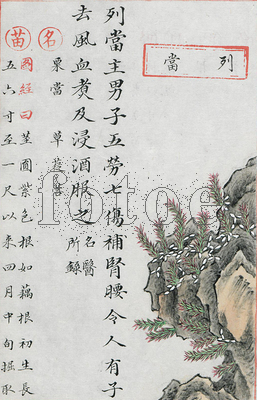 列當
列當主男子五勞七傷補腎腰令人有子
去風血煑及浸酒服之名醫
所錄
名
栗當 草蓯蓉
苗
圖經曰莖圓紫色根如藕根初生長
五六寸至一尺以來四月中旬掘取
fotoe